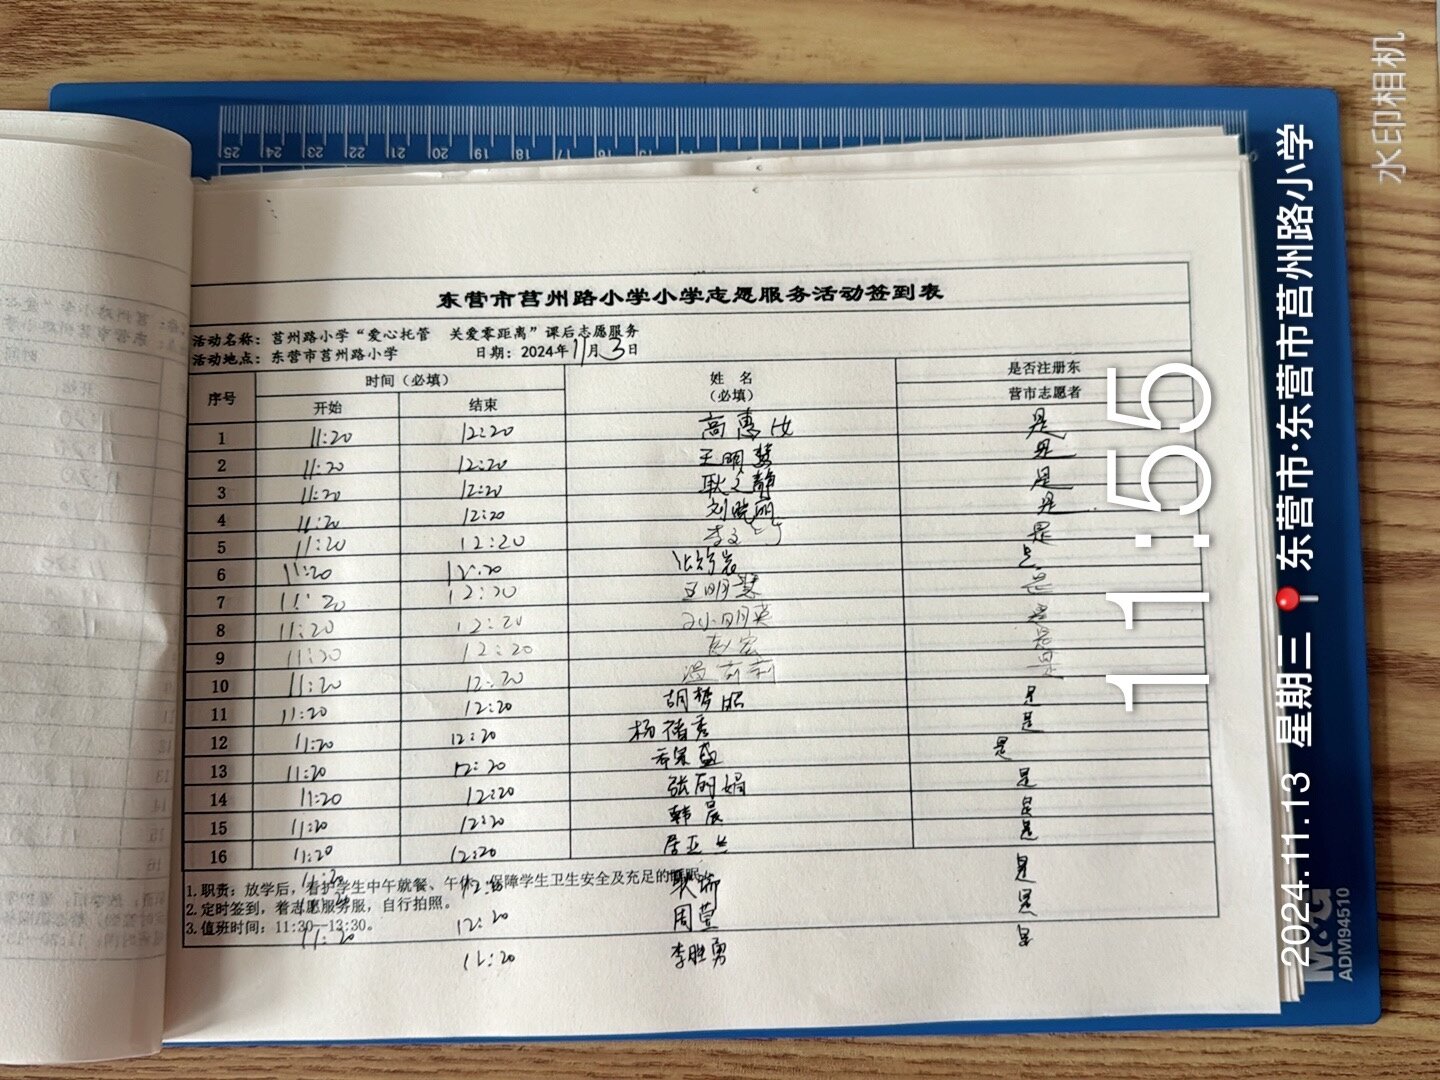 东营市莒州路小学小学志愿服务活动签到表
活动名称：莒州路小学“爱心托管 关爱零距离”课后志愿服务
活动地点：东营市莒州路小学 日期：2024年11月3日
序号 时间（必填） 姓 名（必填） 是否注册东营市志愿者
开始 结束
1 11:20 12:20 高惠 是
2 11:20 12:20 王明慧 是
3 11:20 12:20 耿文静 是
4 11:20 12:20 刘晓丽 是
5 11:20 12:20 李文 是
6 11:20 12:20 是
7 11:20 12:20 王明慧 是
8 11:20 12:20 孙明英 是
9 11:20 12:20 赵宏 是
10 11:20 12:20 温莉莉 是
11 11:20 12:20 胡梦 是
12 11:20 12:20 杨 秀 是
13 11:20 12:20 是
14 11:20 12:20 张丽娟 是
15 11:20 12:20 韩晨 是
16 11:20 12:20 是
1.职责：放学后，看护学生中午就餐、午休，保障学生卫生安全及充足的睡眠
11:20 12:20 耿娜 是
2.定时签到，着志愿服务服，自行拍照。
11:20 12:20 周萱 是
3.值班时间：11:30--13:30。
11:20 11:20 李胜勇 是
25 24 23 22 21 20 19 18 17 16 15
M&G
ADM94510
水印相机
11:55
2024.11.13 星期三 东营市·东营市莒州路小学